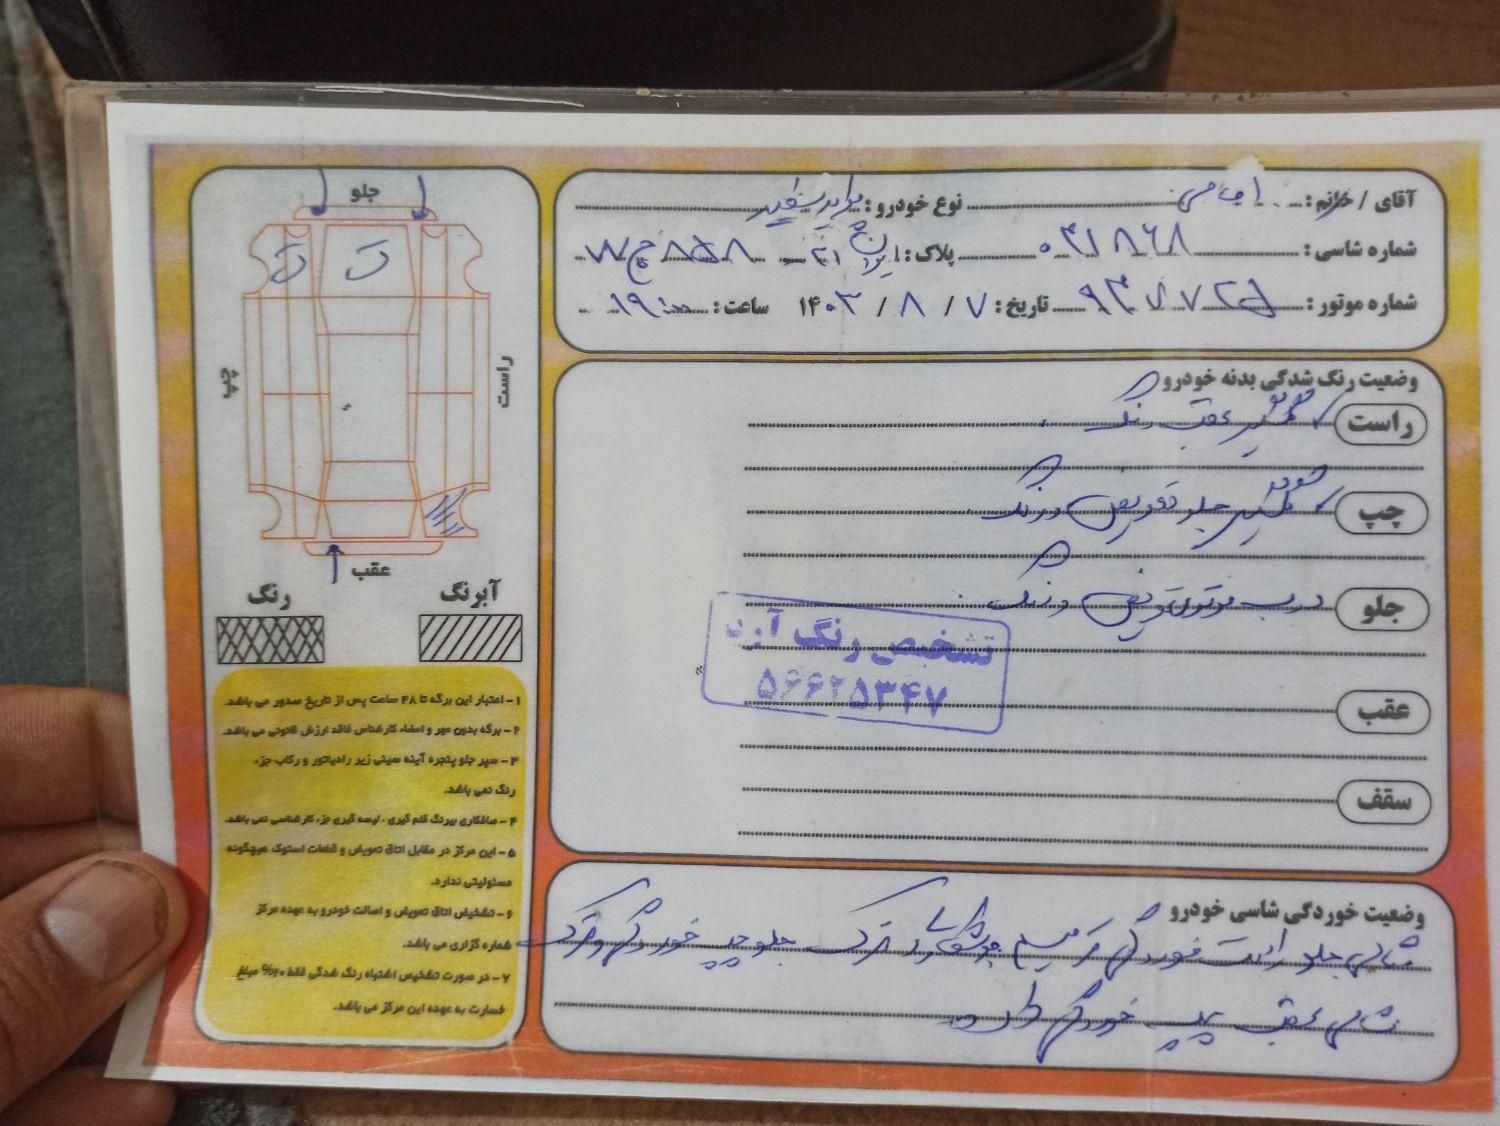 آقای / خانم : امامی نوع خودرو : پراید سفید
شماره شاسی : ۰۴۱۸۶۸ پلاک : ایران ۲۱
شماره موتور : تاریخ : ۷ / ۸ / ۱۴۰۳ ساعت : ۱۹:۰۰
وضعیت رنگ شدگی بدنه خودرو
راست گلگیر عقب رنگ
چپ گلگیر جلو تعویض و رنگ
جلو درب موتور تعویض و رنگ
عقب
سقف
تشخیص رنگ
۵۶۶۲۵۳۴۷
وضعیت خوردگی شاسی خودرو
شاسی جلو راست خوردگی ترمیم جوشکاری و ترک جلو چپ خوردگی و ترک
شاسی عقب چپ خوردگی دارد
جلو
چپ
راست
عقب
رنگ
آبرنگ
۱- اعتبار این برگه تا ۴۸ ساعت پس از تاریخ صدور می باشد.
۲- برگه بدون مهر و امضاء کارشناس فاقد ارزش قانونی می باشد.
۳- سپر جلو پنجره آینه سینی زیر رادیاتور و رکاب جزء
رنگ نمی باشد.
۴- صافکاری بیرنگ قلم گیری ، لیسه گیری جزء کارشناسی نمی باشد.
۵- این مرکز در مقابل اتاق تعویض و قطعات استوک هیچگونه
مسئولیتی ندارد.
۶- تشخیص اتاق تعویض و اصالت خودرو به عهده مرکز
شماره گزاری می باشد.
۷- در صورت تشخیص اشتباه رنگ شدگی فقط ۲۰% مبلغ
خسارت به عهده این مرکز می باشد.